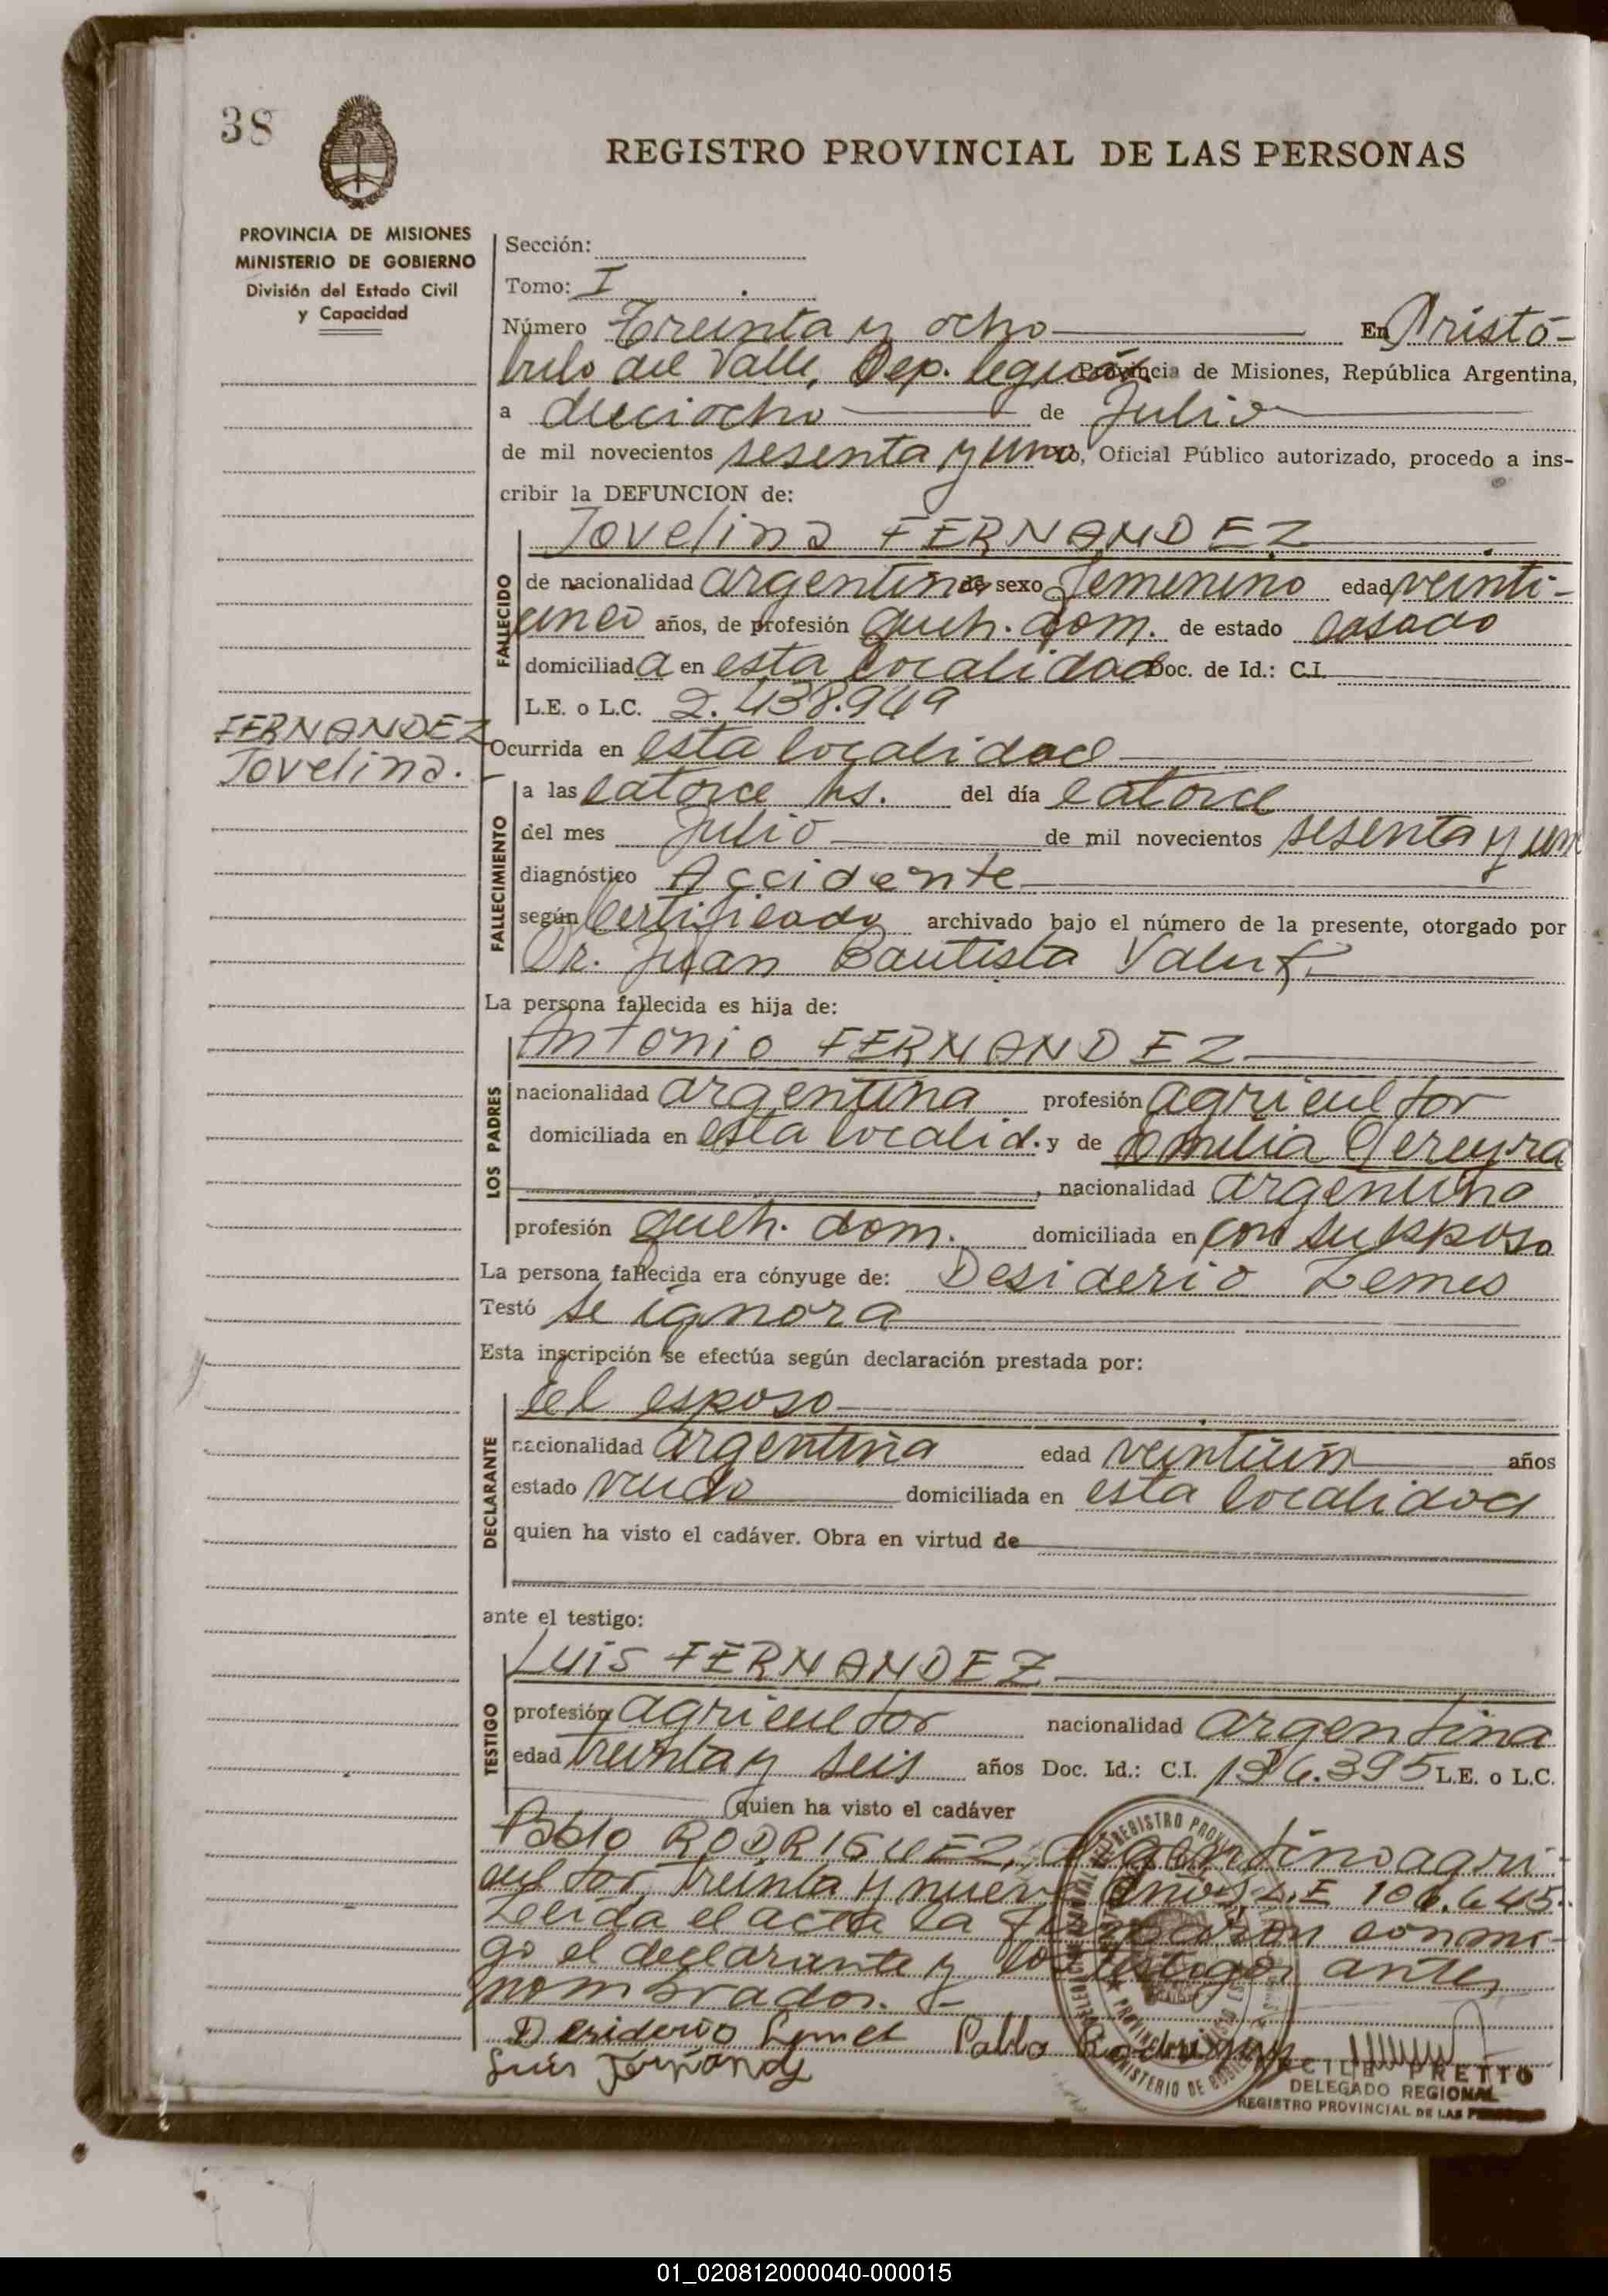 38
REGISTRO PROVINCIAL DE LAS PERSONAS
PROVINCIA DE MISIONES
MINISTERIO DE GOBIERNO
División del Estado Civil
y Capacidad
Sección:
Tomo: I
Número Treinta y ocho En Aristó-
bulo del Valle, Dep. Provincia de Misiones, República Argentina,
a dieciocho de Julio
de mil novecientos sesenta y uno, Oficial Público autorizado, procedo a ins-
cribir la DEFUNCION de:
Jovelina FERNANDEZ
FALLECIDO
de nacionalidad argentina de sexo femenino edad veinti-
cinco años, de profesión queh. dom. de estado casado
domiciliada en esta localidad Doc. de Id.: C.I.
L.E. o L.C. 2.438.949
FERNANDEZ
Jovelina.
Ocurrida en esta localidad
FALLECIMIENTO
a las catorce hs. del día catorce
del mes Julio de mil novecientos sesenta y un
diagnóstico Accidente
según Certificado archivado bajo el número de la presente, otorgado por
Dr. Juan Bautista
La persona fallecida es hija de:
LOS PADRES
Antonio FERNANDEZ
nacionalidad argentina profesión agricultor
domiciliada en esta localid. y de Pereyra
, nacionalidad argentina
profesión queh. dom. domiciliada en con su esposo
La persona fallecida era cónyuge de: Desiderio Lemes
Testó se ignora
Esta inscripción se efectúa según declaración prestada por:
DECLARANTE
el esposo
nacionalidad argentina edad veintiún años
estado viudo domiciliada en esta localidad
quien ha visto el cadáver. Obra en virtud de
ante el testigo:
TESTIGO
Luis FERNANDEZ
profesión agricultor nacionalidad argentina
edad treinta y seis años Doc. Id.: C.I. 136.395 L.E. o L.C.
quien ha visto el cadáver
Pablo RODRIGUEZ, argentino agri-
cultor, treinta y nueve años L.E 106.645.
Leida el acta la conmi-
go el declarante y los testigos antes
nombrados.
Desiderio Lemes Pablo Rodriguez
Luis Fernandez
PRETTO
DELEGADO REGIONAL
REGISTRO PROVINCIAL DE LAS PERSONAS
01_020812000040-000015